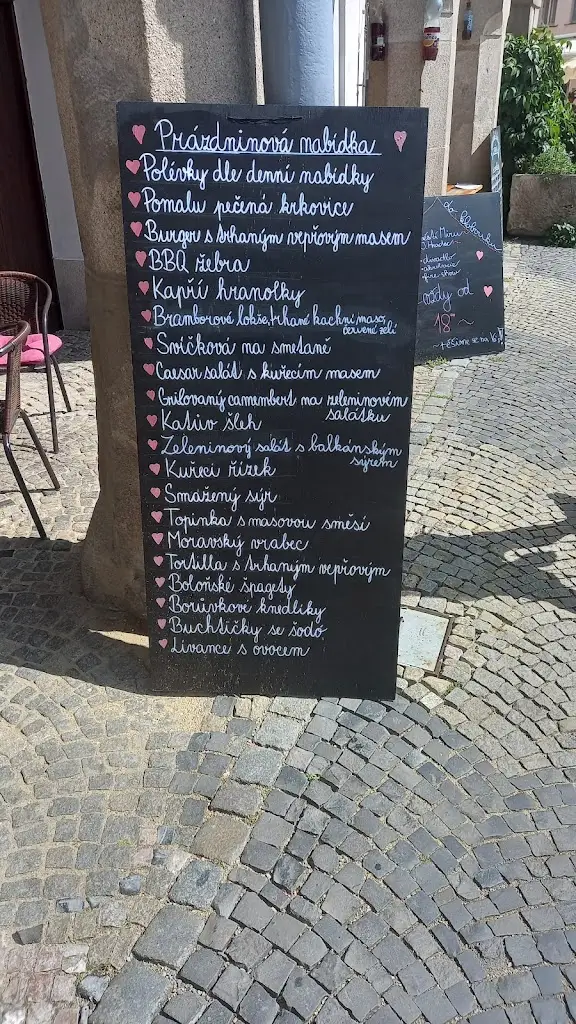 Prázdninová nabídka
Polévky dle denní nabídky
Pomalu pečená krkovice
Burger s trhaným vepřovým masem
BBQ žebra
Kapří hranolky
Bramborové lokše, trhané kachní maso,
červené zelí
Svíčková na smetaně
Caesar salát s kuřecím masem
Grilovaný camembert na zeleninovém
salátku
Kativ šleh
Zeleninový salát s balkánským
sýrem
Kuřecí řízek
Smažený sýr
Topinka s masovou směsí
Moravský vrabec
Tortilla s trhaným vepřovým
Boloňské špagety
Borůvkové knedlíky
Buchtičky se šodó
Lívance s ovocem
- divadlo
fire show
vždy od
18